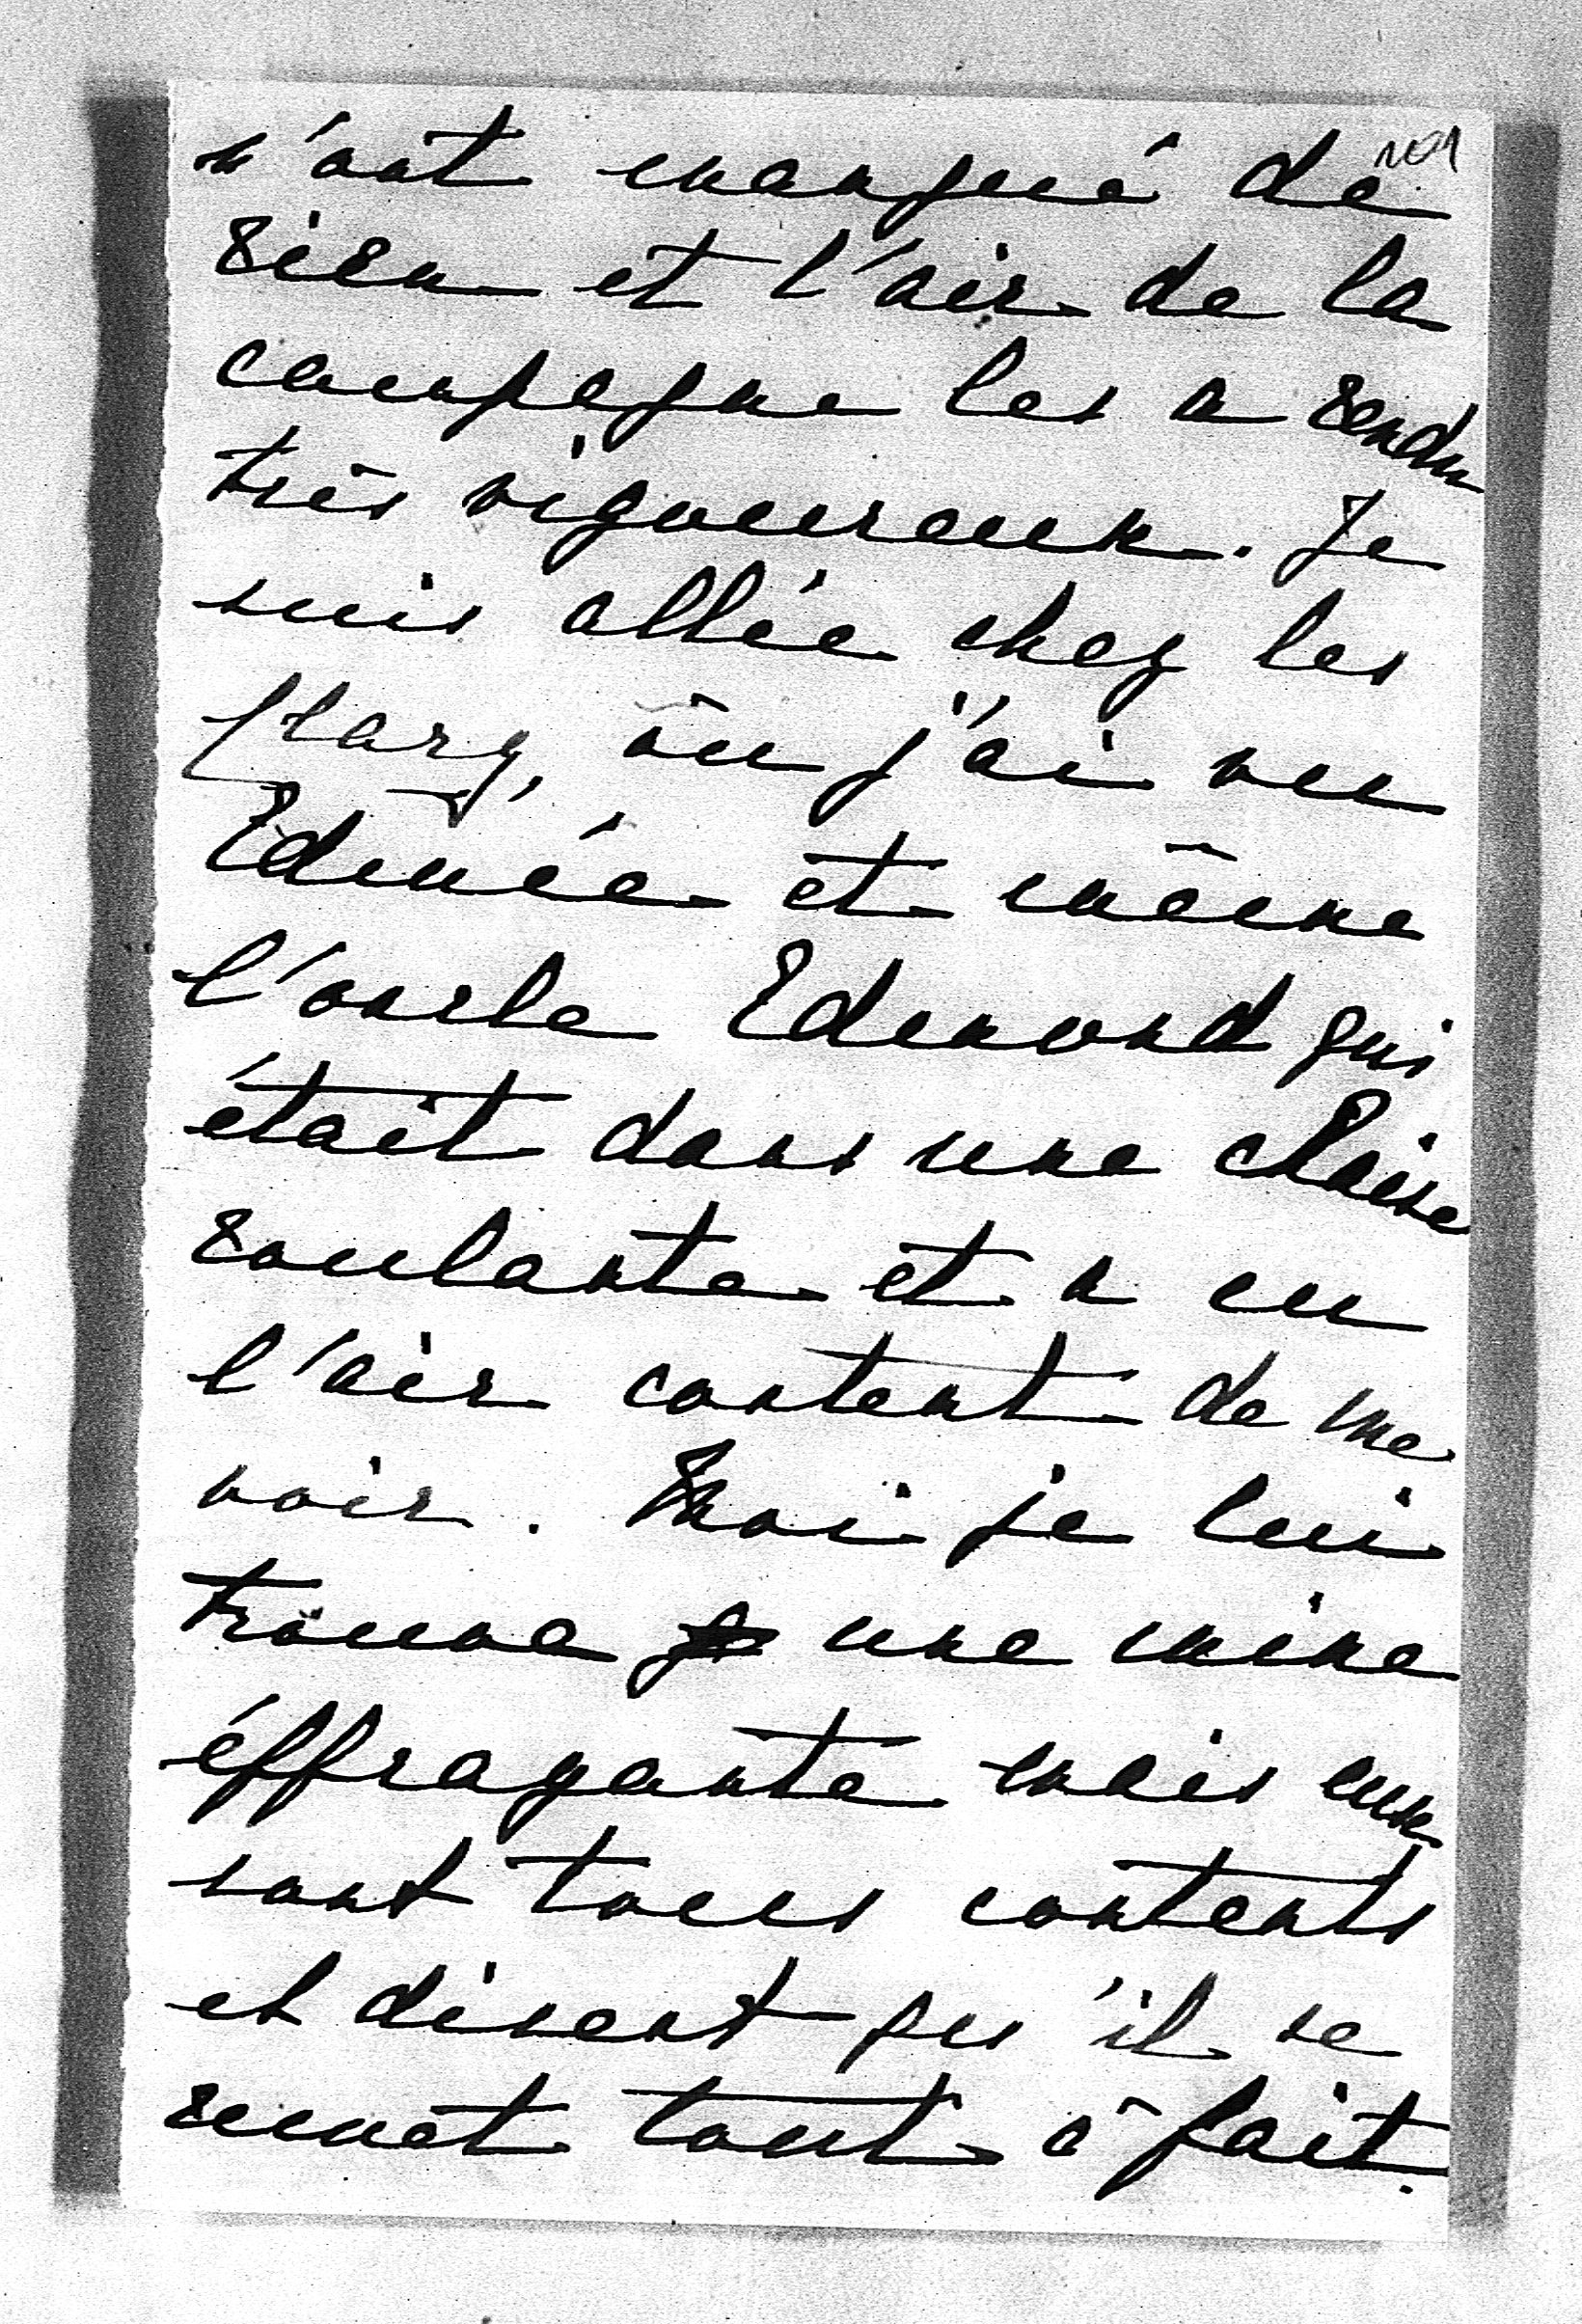 109
n'ont manqué de
rien et l'air de la
campagne les a rendu
très vigoureux. Je
suis allée chez les
Flary, où j'ai vu
Edmée et même
l'oncle Edmond qui
était dans une chaise
roulante et a eu
l'air content de me
voir. Moi je lui
trouve une mine
éffrayante mais eux
sont tous contents
et disent qu'il se
remet tout à fait.